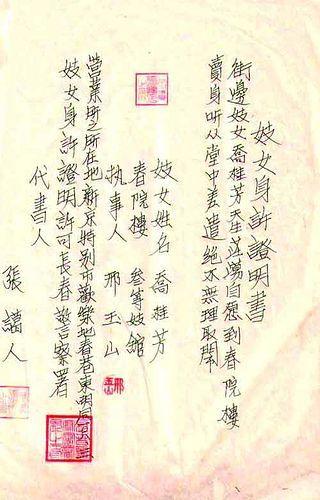 妓女身許證明書
街邊妓女喬桂芳天生淫蕩自想到春院樓
賣身听从堂中差遣絕不無理取鬧
妓女姓名 喬桂芳
春院樓 叁等妓館
执事人 邢玉山
營業所之所在地新京特别市歡樂地春巷東胡同
妓女身許證明許可長春警察署
代書人
張